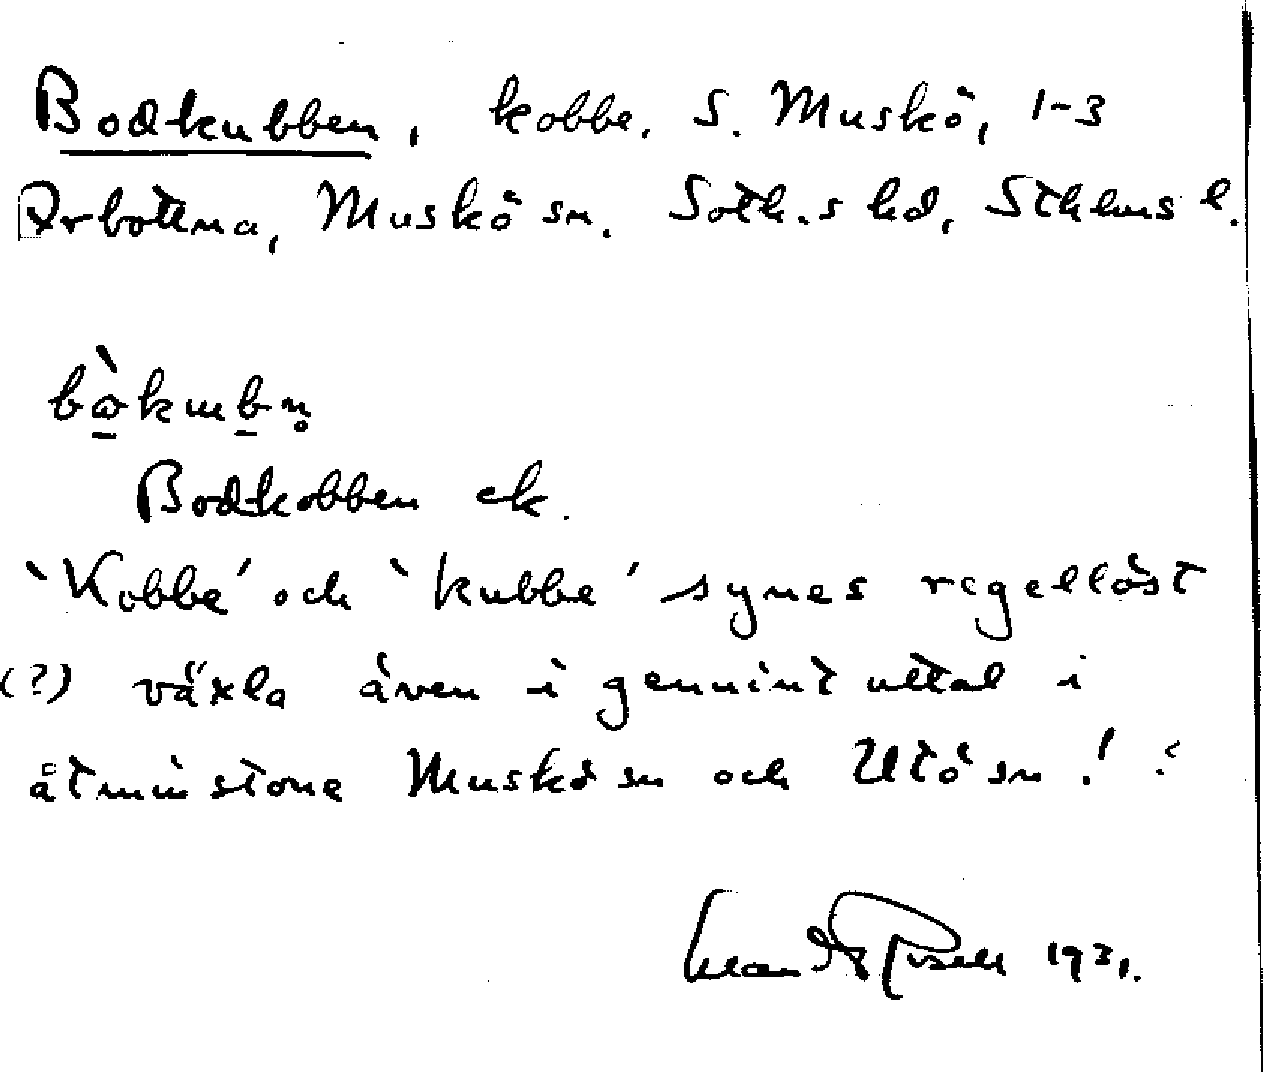 Bodkubben, kobbe, S. Muskö, 1-3
Arbottna, Muskö sn. Soth.s hd, Sthlms l.
bòkɯbn̥
Bodkobben ek.
`Kobbe´ och `kubbe´ synes regellöst
(?) växla även i genuint uttal i
åtminstone Muskö sn och Utö sn!
1931.